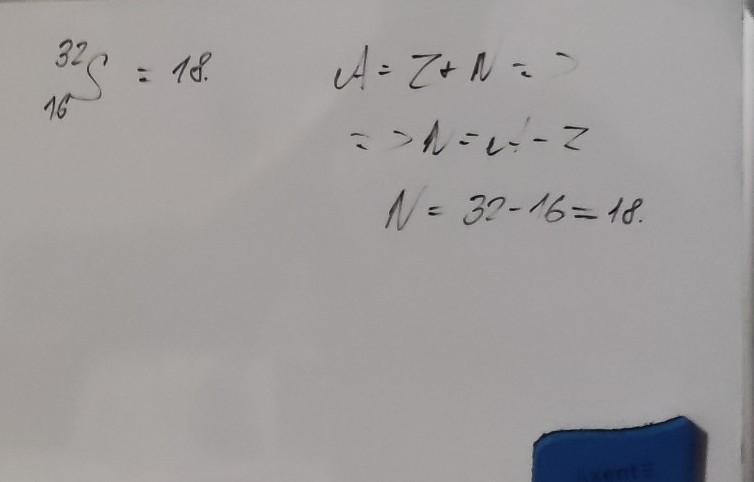 ³²₁₆S = 18.
A = Z + N =>
=> N = A - Z
N = 32 - 16 = 18.
Axent